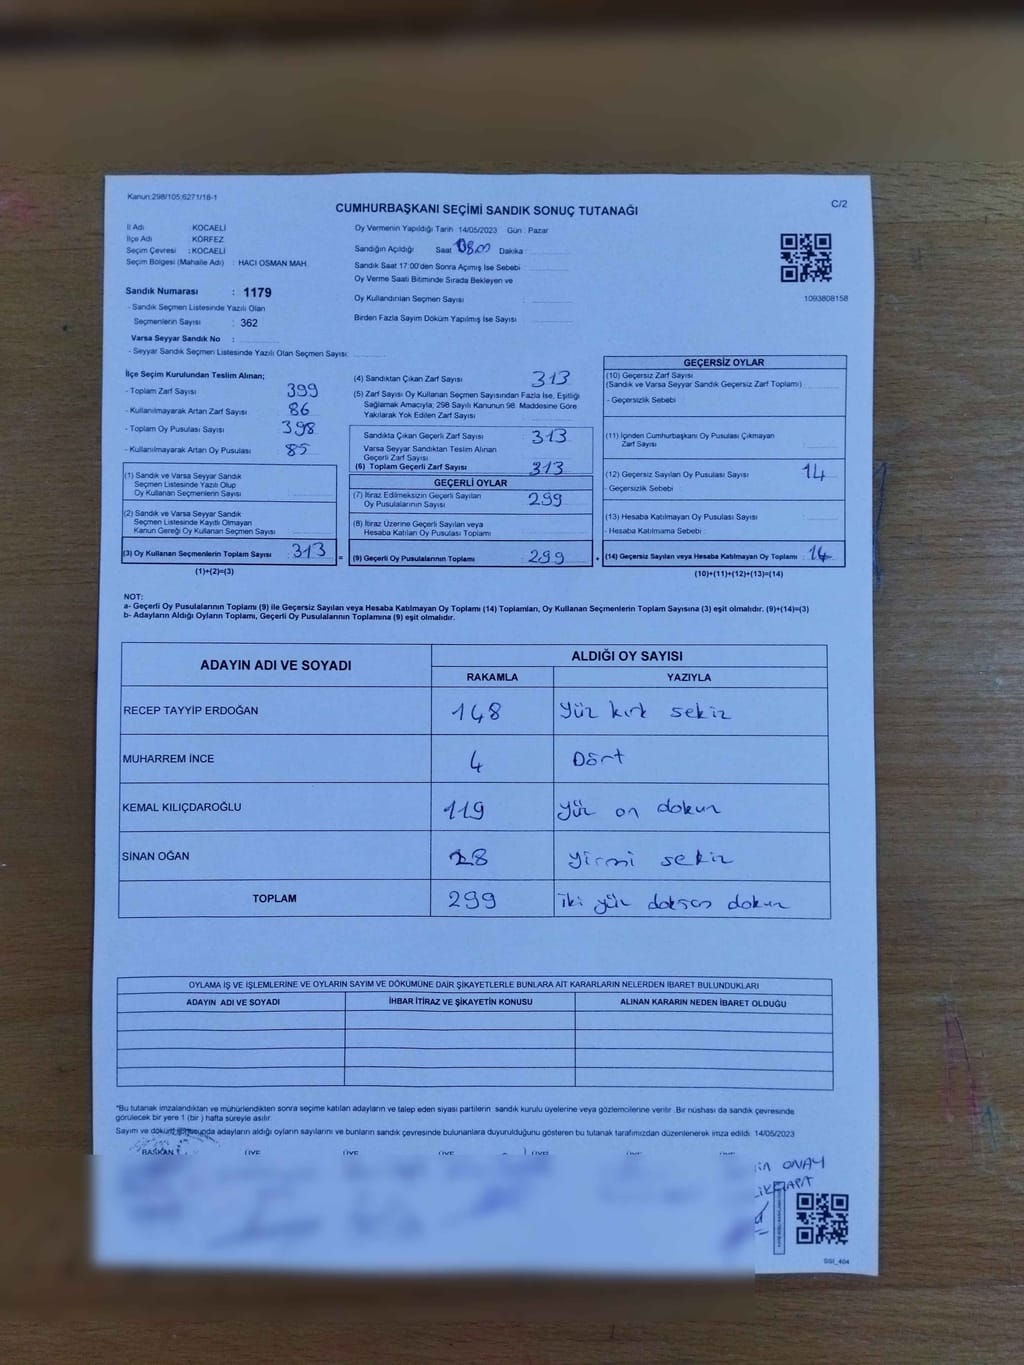 Kanun:298/105;6271/18-1
C/2
CUMHURBAŞKANI SEÇİMİ SANDIK SONUÇ TUTANAĞI
İl Adı KOCAELİ
İlçe Adı KÖRFEZ
Seçim Çevresi : KOCAELİ
Seçim Bölgesi (Mahalle Adı) : HACI OSMAN MAH.
Sandık Numarası : 1179
- Sandık Seçmen Listesinde Yazılı Olan
Seçmenlerin Sayısı : 362
Varsa Seyyar Sandık No :
- Seyyar Sandık Seçmen Listesinde Yazılı Olan Seçmen Sayısı:
Oy Vermenin Yapıldığı Tarih 14/05/2023 Gün : Pazar
Sandığın Açıldığı Saat Dakika :
Sandık Saat 17:00'den Sonra Açılmış İse Sebebi :
Oy Verme Saati Bitiminde Sırada Bekleyen ve
Oy Kullandırılan Seçmen Sayısı :
Birden Fazla Sayım Döküm Yapılmış İse Sayısı :
1093808158
İlçe Seçim Kurulundan Teslim Alınan;
- Toplam Zarf Sayısı 399
- Kullanılmayarak Artan Zarf Sayısı 86
- Toplam Oy Pusulası Sayısı 398
- Kullanılmayarak Artan Oy Pusulası 85
(1) Sandık ve Varsa Seyyar Sandık
Seçmen Listesinde Yazılı Olup
Oy Kullanan Seçmenlerin Sayısı
(2) Sandık ve Varsa Seyyar Sandık
Seçmen Listesinde Kayıtlı Olmayan
Kanun Gereği Oy Kullanan Seçmen Sayısı
(3) Oy Kullanan Seçmenlerin Toplam Sayısı : 313 =
(1)+(2)=(3)
(4) Sandıktan Çıkan Zarf Sayısı 313
(5) Zarf Sayısı Oy Kullanan Seçmen Sayısından Fazla İse, Eşitliği
Sağlamak Amacıyla; 298 Sayılı Kanunun 98. Maddesine Göre
Yakılarak Yok Edilen Zarf Sayısı
Sandıkta Çıkan Geçerli Zarf Sayısı : 313
Varsa Seyyar Sandıktan Teslim Alınan
Geçerli Zarf Sayısı
(6) Toplam Geçerli Zarf Sayısı : 313
GEÇERLİ OYLAR
(7) İtiraz Edilmeksizin Geçerli Sayılan
Oy Pusulalarının Sayısı 299
(8) İtiraz Üzerine Geçerli Sayılan veya
Hesaba Katılan Oy Pusulası Toplamı
(9) Geçerli Oy Pusulalarının Toplamı : 299 +
GEÇERSİZ OYLAR
(10) Geçersiz Zarf Sayısı
(Sandık ve Varsa Seyyar Sandık Geçersiz Zarf Toplamı)
- Geçersizlik Sebebi :
(11) İçinden Cumhurbaşkanı Oy Pusulası Çıkmayan
Zarf Sayısı
(12) Geçersiz Sayılan Oy Pusulası Sayısı : 14
- Geçersizlik Sebebi :
(13) Hesaba Katılmayan Oy Pusulası Sayısı :
- Hesaba Katılmama Sebebi :
(14) Geçersiz Sayılan veya Hesaba Katılmayan Oy Toplamı : 14
(10)+(11)+(12)+(13)=(14)
NOT:
a- Geçerli Oy Pusulalarının Toplamı (9) ile Geçersiz Sayılan veya Hesaba Katılmayan Oy Toplamı (14) Toplamları, Oy Kullanan Seçmenlerin Toplam Sayısına (3) eşit olmalıdır. (9)+(14)=(3)
b- Adayların Aldığı Oyların Toplamı, Geçerli Oy Pusulalarının Toplamına (9) eşit olmalıdır.
ADAYIN ADI VE SOYADI ALDIĞI OY SAYISI
RAKAMLA YAZIYLA
RECEP TAYYİP ERDOĞAN 148 Yüz kırk sekiz
MUHARREM İNCE 4 Dört
KEMAL KILIÇDAROĞLU 119 Yüz on dokuz
SİNAN OĞAN 28 Yirmi sekiz
TOPLAM 299 iki yüz doksan dokuz
OYLAMA İŞ VE İŞLEMLERİNE VE OYLARIN SAYIM VE DÖKÜMÜNE DAİR ŞİKAYETLERLE BUNLARA AİT KARARLARIN NELERDEN İBARET BULUNDUKLARI
ADAYIN ADI VE SOYADI İHBAR İTİRAZ VE ŞİKAYETİN KONUSU ALINAN KARARIN NEDEN İBARET OLDUĞU
*Bu tutanak imzalandıktan ve mühürlendikten sonra seçime katılan adayların ve talep eden siyasi partilerin sandık kurulu üyelerine veya gözlemcilerine verilir. Bir nüshası da sandık çevresinde
görülecek bir yere 1 (bir ) hafta süreyle asılır.
Sayım ve dökümü adayların aldığı oyların sayılarını ve bunların sandık çevresinde bulunanlara duyurulduğunu gösteren bu tutanak tarafımızdan düzenlenerek imza edildi. 14/05/2023
BAŞKAN ÜYE ÜYE ÜYE ÜYE
ONAY
SSI_404